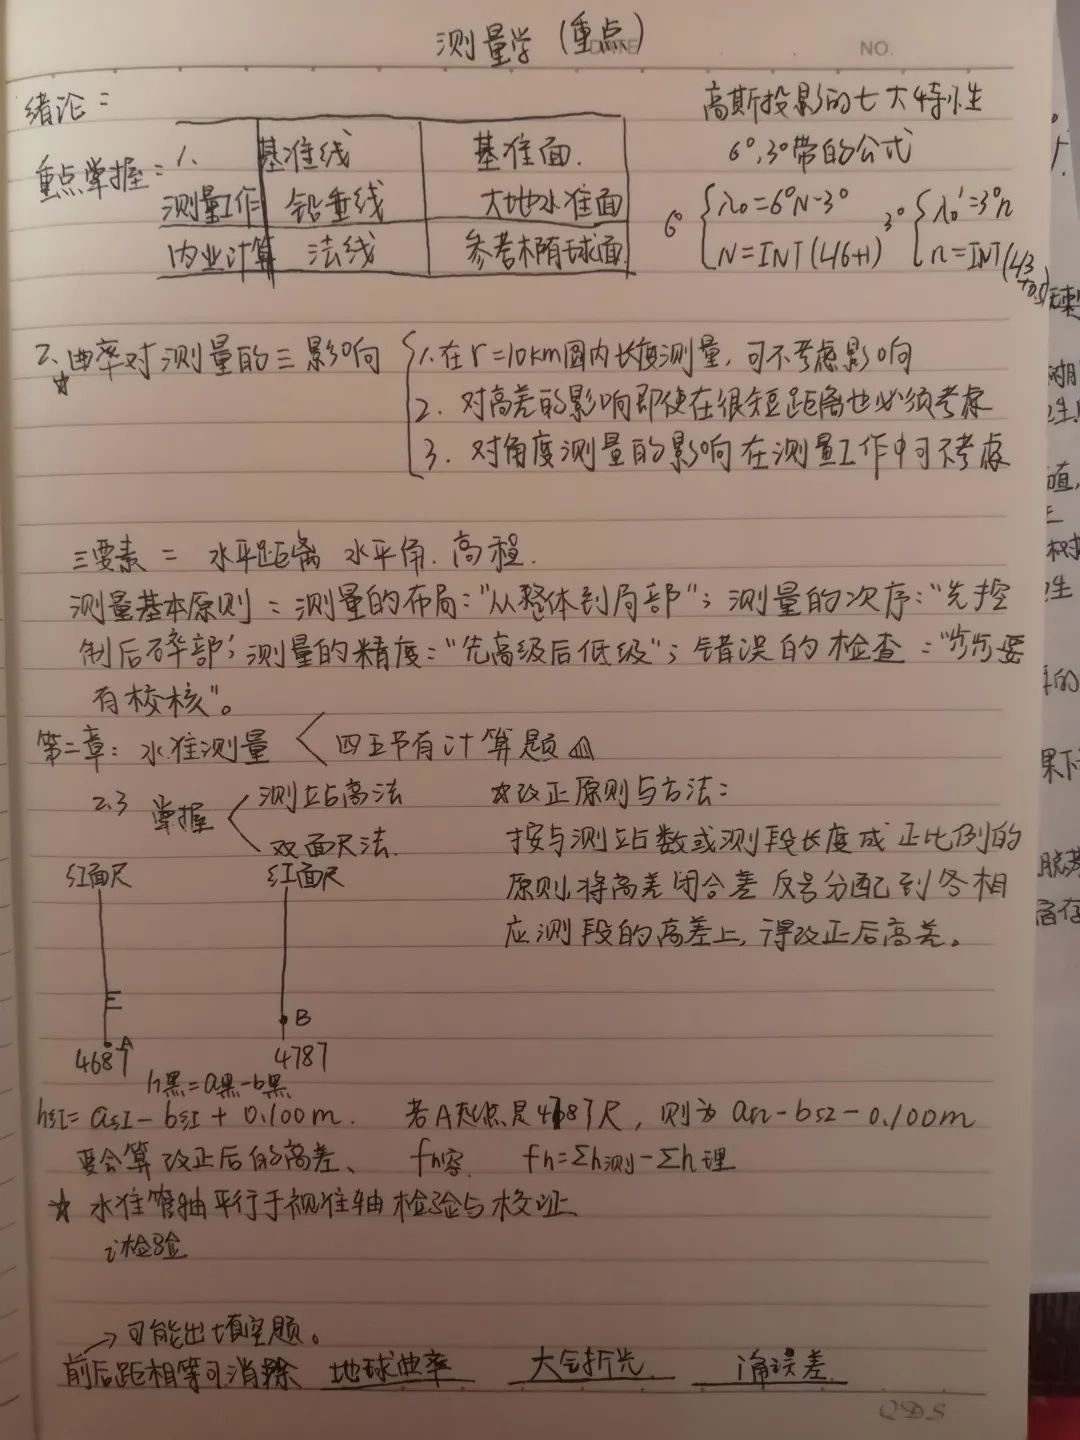 测量学(重点)
NO.
绪论:
高斯投影的七大特性
6°,3°带的公式
重点掌握:1. 基准线 基准面.
测量工作 铅垂线 大地水准面
内业计算 法线 参考椭球面
6° λ0=6°N-3° 3° λ0'=3°n
N=INT(L/6+1) n=INT(L/3+0.5)
2. 曲率对测量的三影响
☆
1.在r=10km圆内长度测量,可不考虑影响
2. 对高差的影响即使在很短距离也必须考虑
3. 对角度测量的影响在测量工作中可不考虑
三要素: 水平距离 水平角. 高程.
测量基本原则:测量的布局:"从整体到局部";测量的次序:"先控
制后碎部;测量的精度:"先高级后低级";错误的检查:"步步要
有校核"。
第二章:水准测量 四五节有计算题
2.3 掌握 测站高法
双面尺法.
☆改正原则与方法:
按与测站数或测段长度成正比例的
原则,将高差闭合差反号分配到各相
应测段的高差上,得改正后高差。
红面尺 红面尺
B
4687 A 4787
h黑=a黑-b黑
h红=a红-b红+0.100m. 若A起点是4787尺,则为a红-b红-0.100m
要会算改正后的高差、 fh容. fh=Σh测-Σh理
☆ 水准管轴平行于视准轴检验与校正、
i检验
→可能出填空题。
前后距相等可消除 地球曲率 大气折光. i角误差.
QDS